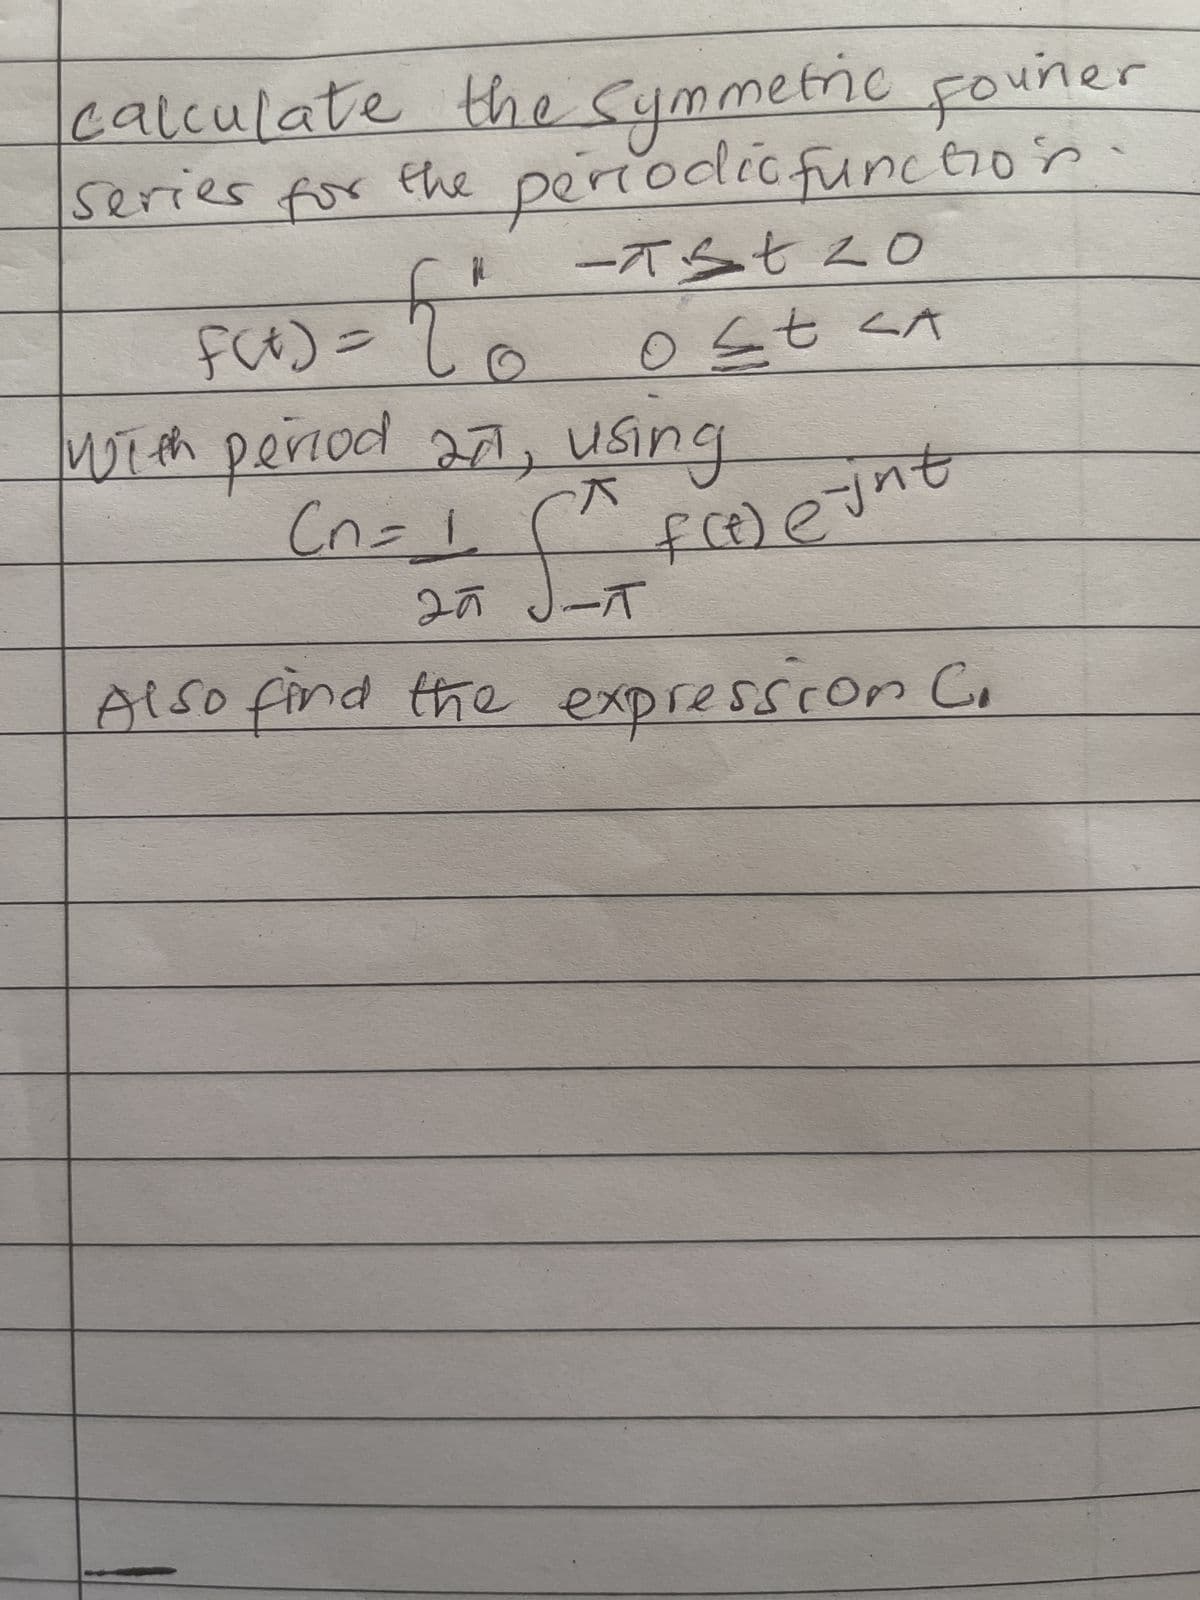 calculate the symmetric fourier
series for the periodic function.
-π ≤ t < 0
f(t) = {
0 0 ≤ t < π
with period 2π, using
Cn = 1/2π ∫_{-π}^{π} f(t) e^{-jnt}
Also find the expression C₁